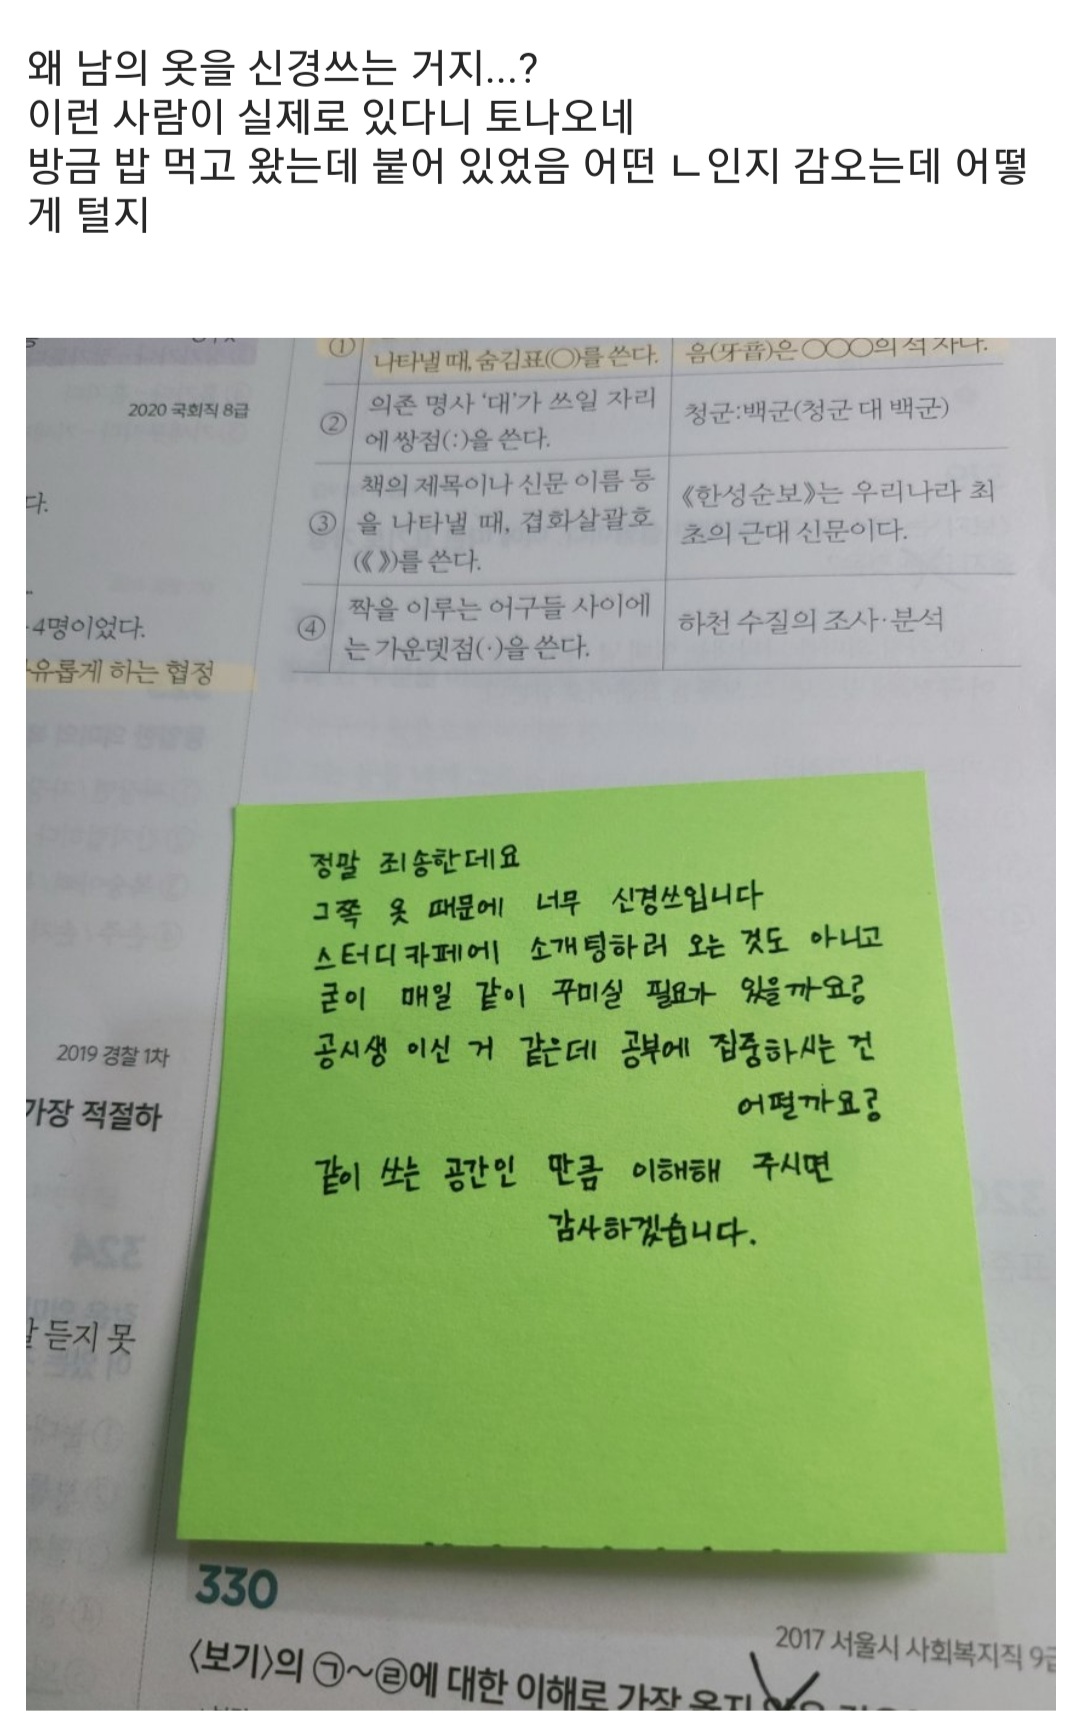 왜 남의 옷을 신경쓰는 거지...?
이런 사람이 실제로 있다니 토나오네
방금 밥 먹고 왔는데 붙어 있었음 어떤 ㄴ인지 감오는데 어떻
게 털지
①
나타낼 때, 숨김표(○)를 쓴다.
음(牙音)은 ○○○의 석 자다.
2020 국회직 8급
② 의존 명사 ‘대’가 쓰일 자리
에 쌍점(:)을 쓴다.
청군:백군(청군 대 백군)
다.
③ 책의 제목이나 신문 이름 등
을 나타낼 때, 겹화살괄호
(《 》)를 쓴다.
《한성순보》는 우리나라 최
초의 근대 신문이다.
4명이었다.
유롭게 하는 협정
④ 짝을 이루는 어구들 사이에
는 가운뎃점(·)을 쓴다.
하천 수질의 조사·분석
정말 죄송한데요
그쪽 옷 때문에 너무 신경쓰입니다
스터디카페에 소개팅하러 오는 것도 아니고
굳이 매일 같이 꾸미실 필요가 있을까요?
공시생 이신 거 같은데 공부에 집중하시는 건
어떨까요?
같이 쓰는 공간인 만큼 이해해 주시면
감사하겠습니다.
2019 경찰 1차
가장 적절하
듣지 못
330
2017 서울시 사회복지직 9급
〈보기〉의 ㉠~㉣에 대한 이해로 가장 옳지